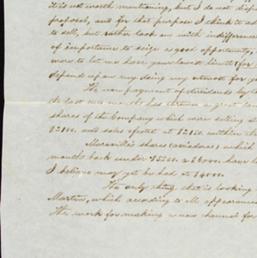 it is not worth mentioning, but I do not disp
proposal, and for that purpose I think to ad
to sell, but rather look on with indifferenc
of importance to seize a good opportunity,
were to let me have your lowest limit for
depend upon my doing my utmost for y
The non payment of dividends by
the last two months has
shares of the Company which were selling at
$2100. and sales effected at $2150. within
shares (aviadores) which
months back under $5500. a $6000. have
I believe may yet be had at $4000.
The only thing that is looking
Martin, which according to all appearances
The work for making a new channel for